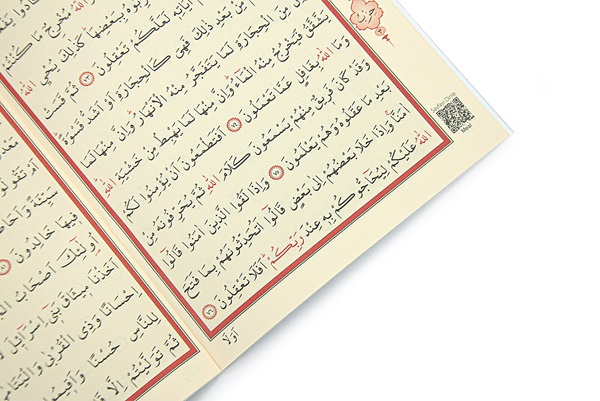 مُخْرِجٌ مَا كُنْتُمْ
بِبَعْضِهَا كَذٰلِكَ يُحْيِى اللّٰهُ
اٰيَاتِهِ لَعَلَّكُمْ تَعْقِلُونَ ٧٣ ثُمَّ قَسَتْ
مِنْ بَعْدِ ذٰلِكَ فَهِىَ كَالْحِجَارَةِ اَوْ اَشَدُّ قَسْوَةً
مِنَ الْحِجَارَةِ لَمَا يَتَفَجَّرُ مِنْهُ الْاَنْهَارُ وَاِنَّ مِنْهَا لَمَا
يَشَّقَّقُ فَيَخْرُجُ مِنْهُ الْمَاءُ وَاِنَّ مِنْهَا لَمَا يَهْبِطُ مِنْ خَشْيَةِ اللّٰهِ
وَمَا اللّٰهُ بِغَافِلٍ عَمَّا تَعْمَلُونَ ٧٤ اَفَتَطْمَعُونَ اَنْ يُؤْمِنُوا لَكُمْ
وَقَدْ كَانَ فَرِيقٌ مِنْهُمْ يَسْمَعُونَ كَلَامَ اللّٰهِ ثُمَّ يُحَرِّفُونَهُ مِنْ
بَعْدِ مَا عَقَلُوهُ وَهُمْ يَعْلَمُونَ ٧٥ وَاِذَا لَقُوا الَّذِينَ اٰمَنُوا قَالُوا
اٰمَنَّا وَاِذَا خَلَا بَعْضُهُمْ اِلٰى بَعْضٍ قَالُوا اَتُحَدِّثُونَهُمْ بِمَا فَتَحَ
اللّٰهُ عَلَيْكُمْ لِيُحَاجُّوكُمْ بِهِ عِنْدَ رَبِّكُمْ اَفَلَا تَعْقِلُونَ ٧٦
اَوَلَا
Meal
اَمْ تَقُو
سَيِّئَةً وَاَحَا
فِيهَا خَالِدُونَ
اُولٰئِكَ اَصْحَابُ
اَخَذْنَا مِيثَاقَ بَنِى اِسْرَائِلَ
اِحْسَانًا وَذِى الْقُرْبٰى وَالْيَتَا
لِلنَّاسِ حُسْنًا وَاَقِيمُوا
ثُمَّ تَوَلَّيْتُمْ اِلَّا